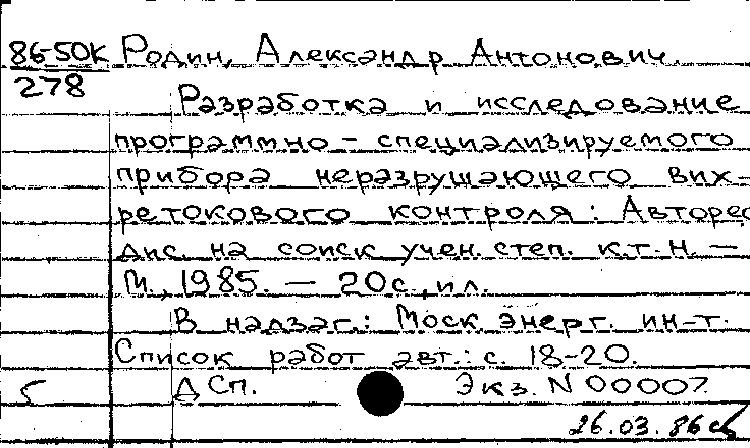 86-50к Родин, Александр Антонович.
278
Разработка и исследование
программно-специализируемого
прибора неразрушающего вих-
ретокового контроля: Авторе
дис. на соиск учен. степ. к.т.н. -
М., 1985. - 20с., ил.
В надзаг.: Моск энерг. ин-т.
Список работ авт.: с. 18-20.
5 ДСП. Экз. N 00007.
26.03.86